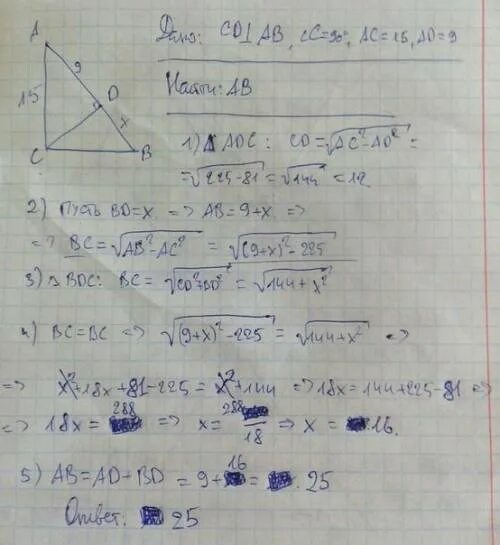 Дано: CD⊥AB, ∠C=90°, AC=15, AD=9
Найти: AB
A
9
15
D
x
C
B
1) △ADC: CD=√(AC²-AD²)=
=√(225-81)=√144=12
2) Пусть BD=x. => AB=9+x. =>
=> BC=√(AB²-AC²)=√((9+x)²-225)
3) △BDC: BC=√(CD²+BD²)=√(144+x²)
4) BC=BC => √((9+x)²-225)=√(144+x²) =>
=> x²+18x+81-225=x²+144 => 18x=144+225-81 =>
=> 18x=288 => x=288/18 => x=16.
5) AB=AD+BD=9+16=25
Ответ: 25